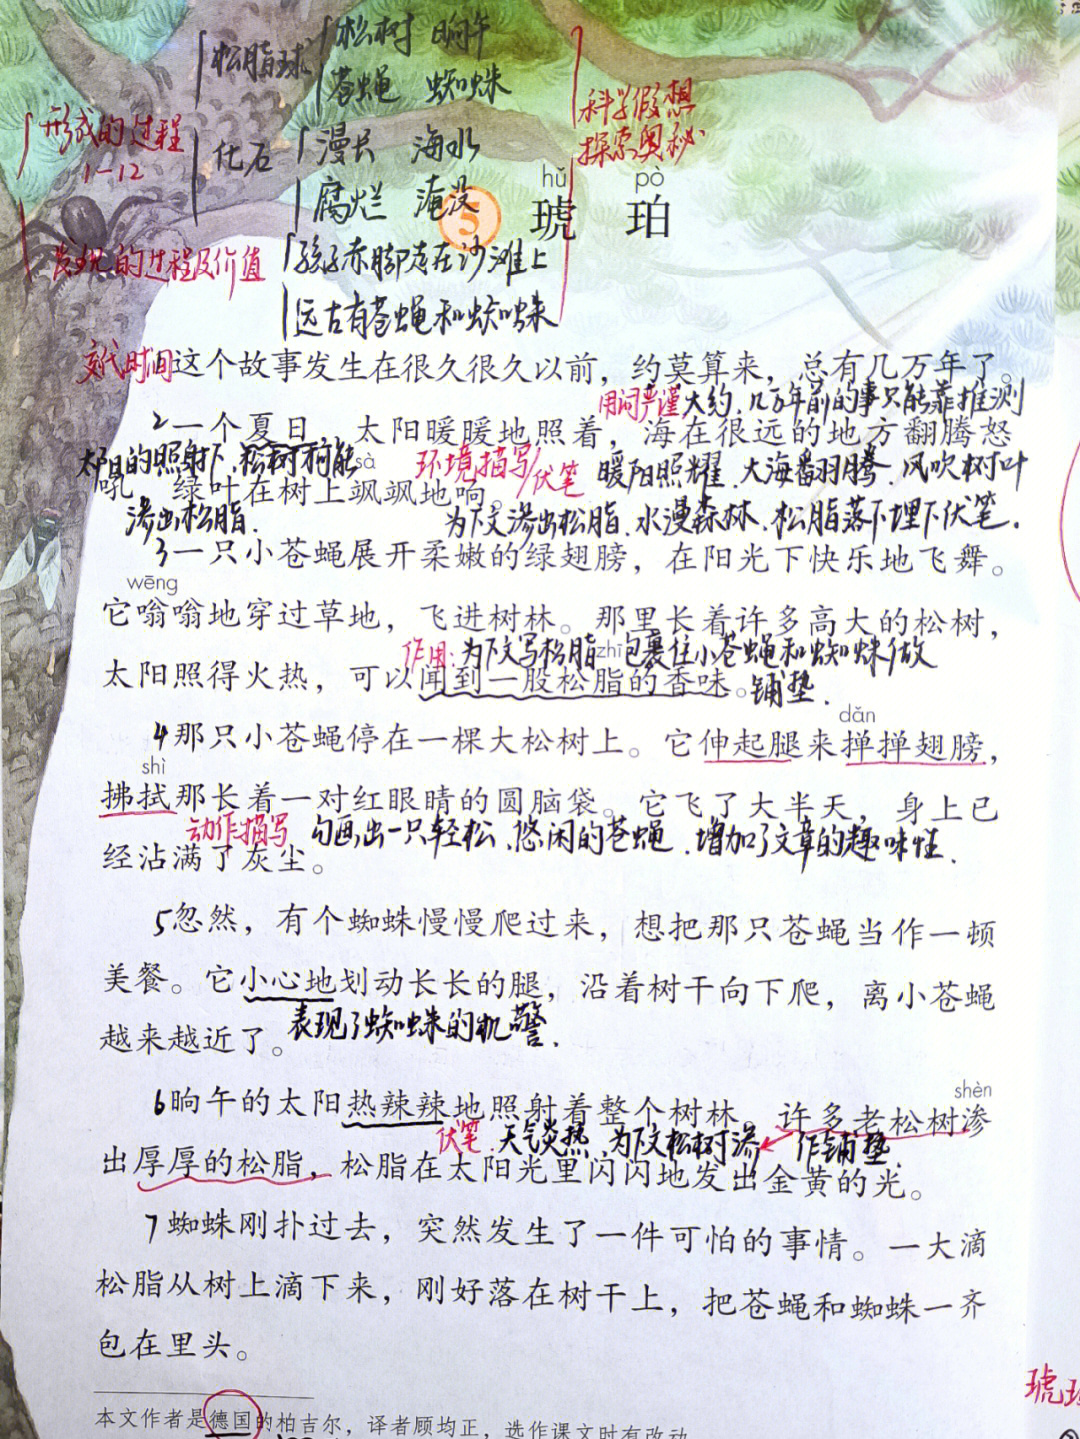 松脂球 松树 晌午
苍蝇 蜘蛛
科学假想
探索奥秘
形成的过程
1-12
化石 漫长 海水
腐烂 淹没
hǔ pò
5 琥珀
发现的过程及价值
孩子赤脚走在沙滩上
远古有苍蝇和蜘蛛
交代时间
1这个故事发生在很久很久以前，约莫算来，总有几万年了。
用词严谨 大约.几万年前的事只能靠推测
2一个夏日，太阳暖暖地照着，海在很远的地方翻腾怒
太阳的照射下,松树可能
渗出松脂.
环境描写/伏笔 暖阳照耀.大海翻腾.风吹树叶
sà
吼，绿叶在树上飒飒地响。
为下文渗出松脂.水漫森林.松脂落下埋下伏笔.
3一只小苍蝇展开柔嫩的绿翅膀，在阳光下快乐地飞舞。
wēng
它嗡嗡地穿过草地，飞进树林。那里长着许多高大的松树，
作用:为下文写松脂包裹住小苍蝇和蜘蛛做
铺垫.
zhī
太阳照得火热，可以闻到一股松脂的香味。
dǎn
4那只小苍蝇停在一棵大松树上。它伸起腿来掸掸翅膀，
shì
拂拭那长着一对红眼睛的圆脑袋。它飞了大半天，身上已
动作描写 勾画出一只轻松.悠闲的苍蝇.增加了文章的趣味性.
经沾满了灰尘。
5忽然，有个蜘蛛慢慢爬过来，想把那只苍蝇当作一顿
美餐。它小心地划动长长的腿，沿着树干向下爬，离小苍蝇
越来越近了。
表现了蜘蛛的机警.
shèn
6晌午的太阳热辣辣地照射着整个树林。许多老松树渗
伏笔:天气炎热.为下文松树渗 作铺垫.
出厚厚的松脂，松脂在太阳光里闪闪地发出金黄的光。
7蜘蛛刚扑过去，突然发生了一件可怕的事情。一大滴
松脂从树上滴下来，刚好落在树干上，把苍蝇和蜘蛛一齐
包在里头。
本文作者是德国的柏吉尔，译者顾均正，选作课文时有改动。
琥珀